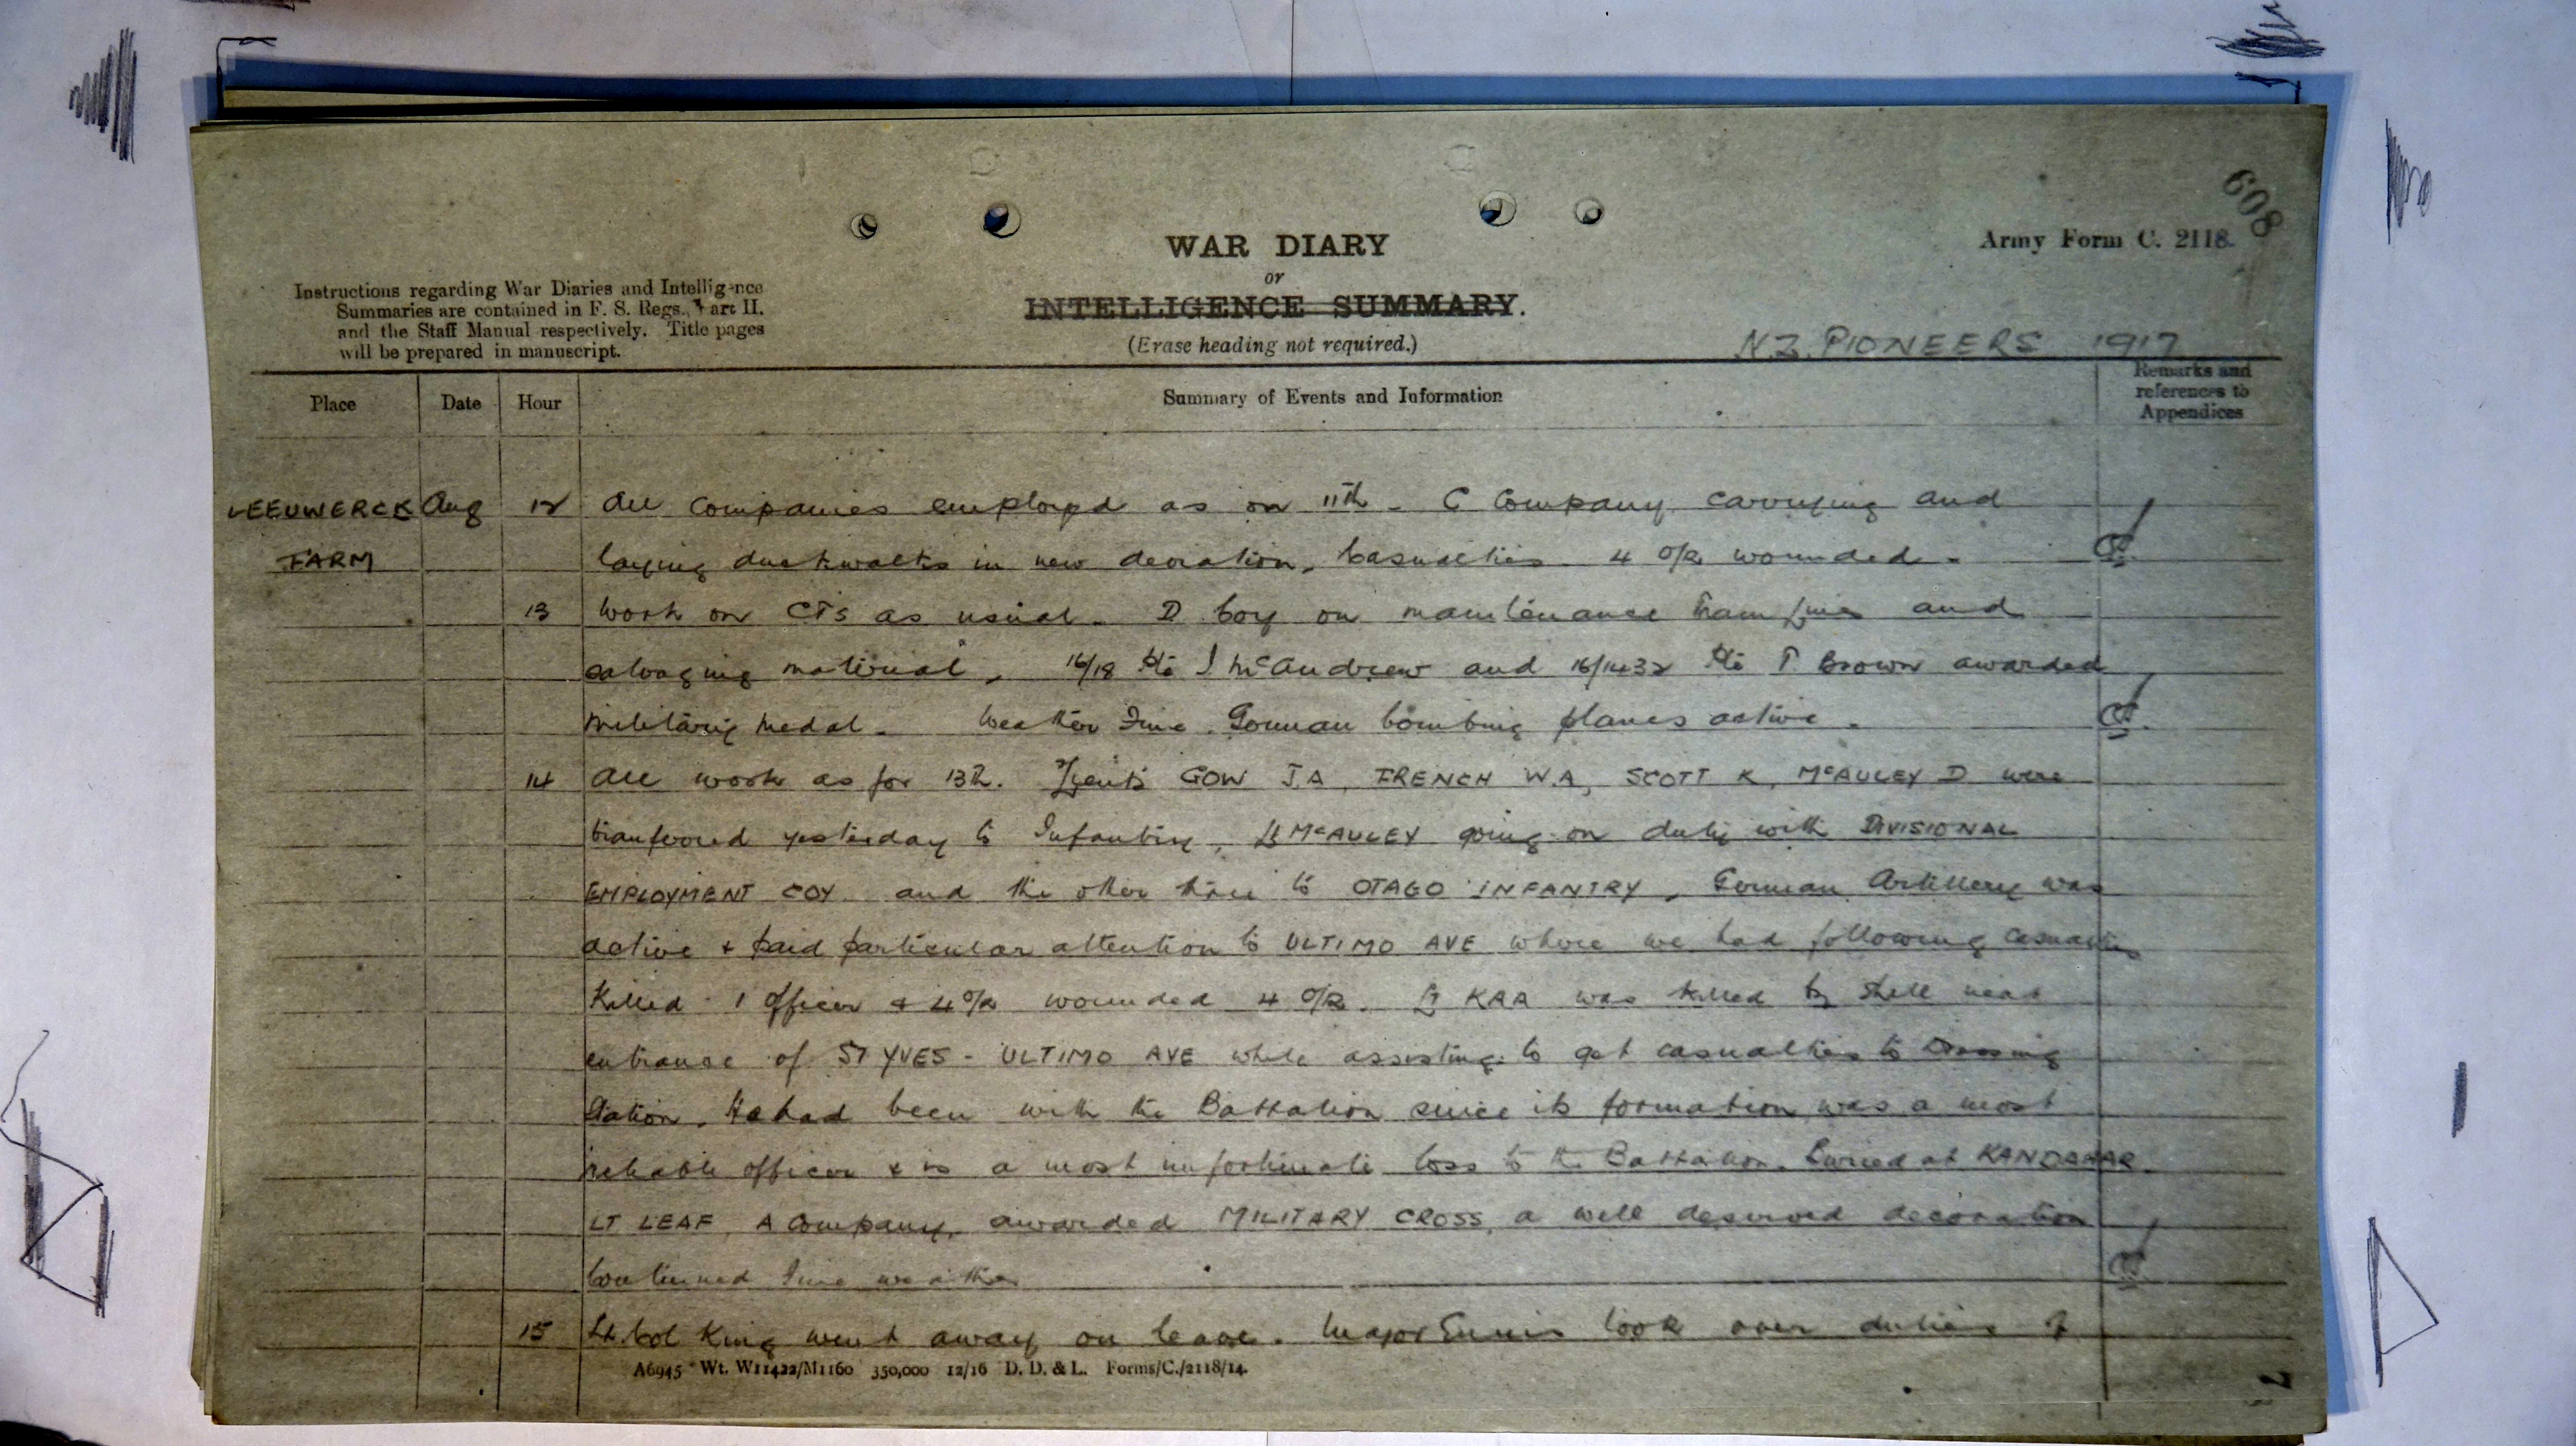 608
Army Form C. 2118.
WAR DIARY
or
INTELLIGENCE SUMMARY.
(Erase heading not required.)
Instructions regarding War Diaries and Intelligence
Summaries are contained in F. S. Regs., Part II.
and the Staff Manual respectively. Title pages
will be prepared in manuscript.
N.Z. PIONEERS 1917
Place Date Hour Summary of Events and Information Remarks and
references to
Appendices
LEEUWERCK Aug 12 All Companies employed as on 11th. C Company carrying and
FARM laying duckwalks in new deviation. Casualties 4 O/R wounded.
13 Work on CTs as usual. D Coy on maintenance Tram lines and
salvaging material. 16/18 Pte J McAndrew and 16/1432 Pte T. Brown awarded
Military Medal. Weather Fine. German bombing planes active.
14 All work as for 13th. GOW J.A, FRENCH W.A, SCOTT K, McAULEY D were
tranferred yesterday to Infantry, Lt McAULEY going on duty with DIVISIONAL
EMPLOYMENT COY and the other three to OTAGO INFANTRY. German Artillery was
active & paid particular attention to ULTIMO AVE where we had following casualties
Killed 1 Officer & 4 O/R wounded 4 O/R. Lt KAA was killed by shell near
entrance of ST YVES - ULTIMO AVE while assisting to get casualties to Dressing
Station. He had been with the Battalion since its formation was a most
reliable officer & is a most unfortunate loss to the Battalion. Buried at KANDAHAR.
LT LEAF, A Company, awarded MILITARY CROSS, a well deserved decoration
Continued Fine weather
15 Lt. Col King went away on leave. Major Ennis took over duties of
A6945 Wt. W11422/M1160 350,000 12/16 D. D. & L. Forms/C./2118/14.